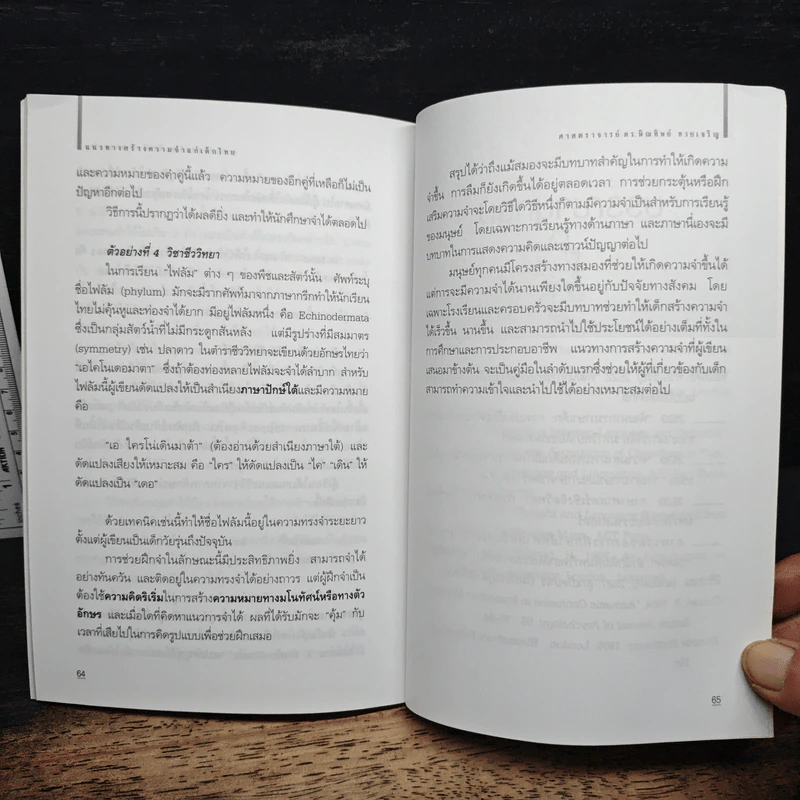 แนวทางสร้างความจำแก่เด็กไทย
และความหมายของคำคู่นี้แล้ว ความหมายของอีกคู่ที่เหลือก็ไม่เป็น
ปัญหาอีกต่อไป
วิธีการนี้ปรากฏว่าได้ผลดียิ่ง และทำให้นักศึกษาจำได้ตลอดไป
ตัวอย่างที่ 4 วิชาชีววิทยา
ในการเรียน "ไฟลัม" ต่าง ๆ ของพืชและสัตว์นั้น ศัพท์ระบุ
ชื่อไฟลัม (phylum) มักจะมีรากศัพท์มาจากภาษากรีกทำให้นักเรียน
ไทยไม่คุ้นหูและท่องจำได้ยาก มีอยู่ไฟลัมหนึ่ง คือ Echinodermata
ซึ่งเป็นกลุ่มสัตว์น้ำที่ไม่มีกระดูกสันหลัง แต่มีรูปร่างที่มีสมมาตร
(symmetry) เช่น ปลาดาว ในตำราชีววิทยาจะเขียนด้วยอักษรไทยว่า
"เอไคโนเดอมาตา" ซึ่งถ้าต้องท่องหลายไฟลัมจะจำได้ลำบาก สำหรับ
ไฟลัมนี้ผู้เขียนดัดแปลงให้เป็นสำเนียงภาษาปักษ์ใต้และมีความหมาย
คือ
"เอ ใครโน่เดินมาต้า" (ต้องอ่านด้วยสำเนียงภาษาใต้) และ
ดัดแปลงเสียงให้เหมาะสม คือ "ใคร" ให้ดัดแปลงเป็น "ไค" "เดิน" ให้
ดัดแปลงเป็น "เดอ"
ด้วยเทคนิคเช่นนี้ทำให้ชื่อไฟลัมนี้อยู่ในความทรงจำระยะยาว
ตั้งแต่ผู้เขียนเป็นเด็กวัยรุ่นถึงปัจจุบัน
การช่วยฝึกจำในลักษณะนี้มีประสิทธิภาพยิ่ง สามารถจำได้
อย่างทันควัน และติดอยู่ในความทรงจำได้อย่างถาวร แต่ผู้ฝึกจำเป็น
ต้องใช้ความคิดริเริ่มในการสร้างความหมายทางมโนทัศน์หรือทางตัว
อักษร และเมื่อใดที่คิดหาแนวการจำได้ ผลที่ได้รับมักจะ "คุ้ม" กับ
เวลาที่เสียไปในการคิดรูปแบบเพื่อช่วยฝึกเสมอ
64
ศาสตราจารย์ ดร.พิณทิพย์ ทวยเจริญ
สรุปได้ว่าถึงแม้สมองจะมีบทบาทสำคัญในการทำให้เกิดความ
จำขึ้น การลืมก็ยังเกิดขึ้นได้อยู่ตลอดเวลา การช่วยกระตุ้นหรือฝึก
เสริมความจำจะโดยวิธีใดวิธีหนึ่งก็ตามมีความจำเป็นสำหรับการเรียนรู้
ของมนุษย์ โดยเฉพาะการเรียนรู้ทางด้านภาษา และภาษานี่เองจะมี
บทบาทในการแสดงความคิดและเชาวน์ปัญญาต่อไป
มนุษย์ทุกคนมีโครงสร้างทางสมองที่ช่วยให้เกิดความจำขึ้นได้
แต่การจะมีความจำได้นานเพียงใดขึ้นอยู่กับปัจจัยทางสังคม โดย
เฉพาะโรงเรียนและครอบครัวจะมีบทบาทช่วยทำให้เด็กสร้างความจำ
ได้เร็วขึ้น นานขึ้น และสามารถนำไปใช้ประโยชน์ได้อย่างเต็มที่ทั้งใน
การศึกษาและการประกอบอาชีพ แนวทางการสร้างความจำที่ผู้เขียน
เสนอมาข้างต้น จะเป็นคู่มือในลำดับแรกซึ่งช่วยให้ผู้ที่เกี่ยวข้องกับเด็ก
สามารถทำความเข้าใจและนำไปใช้ได้อย่างเหมาะสมต่อไป
65